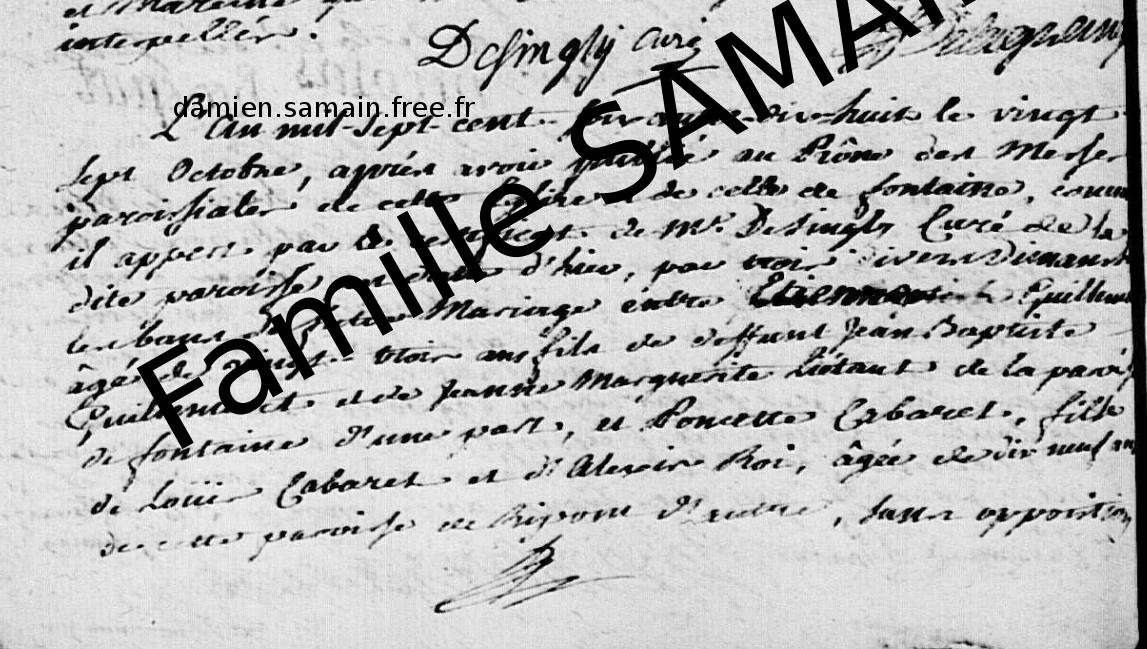 et Mareine
interpellér.
Desingly Curé
damien.samain.free.fr
Famille SAMAI
L'An mil-sept-cent-soixante-dix-huit le vingt
sept Octobre, aprés avoir publié au Prône des Messes
paroissiales de cette Eglise et de celle de fontaine, comme
il appert par le certificat de Mr. Desingly Curé de la
dite paroisse en date d'hier, par trois divers Dimanches
les bans de futur Mariage entre Etienne Guillaume
âgé de vingt-trois ans fils de deffunt Jean-Baptiste
et de Jeanne Marguerite Liétaut de la paroisse
de fontaine d'une part, et Poncette Cabaret, fille
de Loüis Cabaret et d'Alexis Roi, âgée de dix neuf ans
de cette paroisse de Ripont d'autre, sans opposition